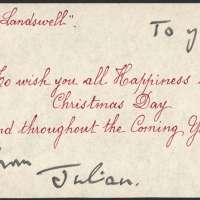 Landswell".
To y
to wish you all Happiness
Christmas Day
nd throughout the Coming Y
rom
Julian.